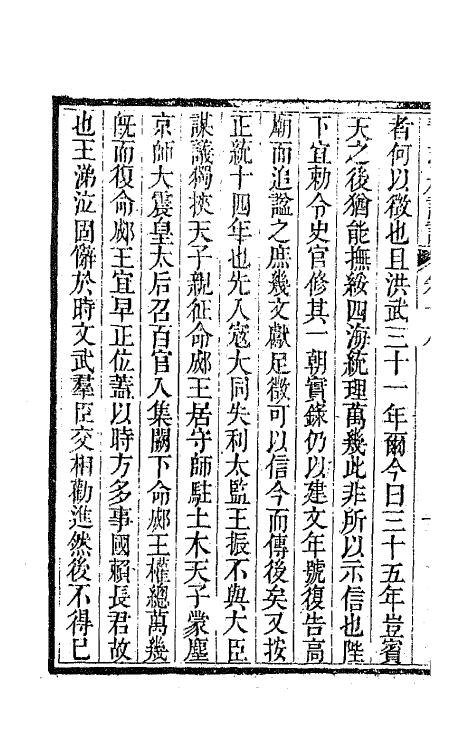 者何以徵也且洪武三十一年爾今日三十五年豈賓
天之後猶能撫綏四海統理萬幾此非所以示信也陛
下宜勅令史官修其一朝實錄仍以建文年號復告高
廟而追諡之庶幾文獻足徵可以信今而傳後矣又按
正統十四年也先入寇大同失利太監王振不與大臣
謀議獨挾天子親征命郕王居守師駐土木天子蒙塵
京師大震皇太后召百官入集闕下命郕王權總萬幾
旣而復命郕王宜早正位蓋以時方多事國賴長君故
也王涕泣固辭於時文武羣臣交相勸進然後不得已